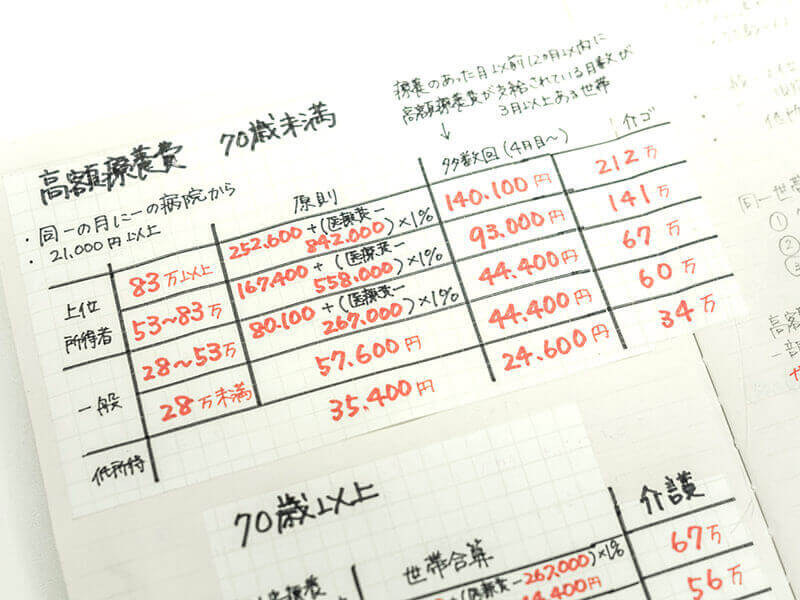 療養のあった月以前12ヶ月以内に
高額療養費が支給されている月数が
3月以上ある世帯
↓
高額療養費 70歳未満
・同一の月に一の病院から
・21,000円以上
原則 多数回(4月目〜) 介ゴ
上位所得者 83万以上 252.600+(医療費−842.000)×1% 140.100円 212万
53〜83万 167.400+(医療費−558.000)×1% 93.000円 141万
一般 28〜53万 80.100+(医療費−267.000)×1% 44.400円 67万
28万未満 57.600円 44.400円 60万
低所得 35.400円 24.600円 34万
70歳以上
世帯合算 介護
(医療費−267,000)×1% 67万
4.400円 56万
同一世帯
①
②
③
高額
一部